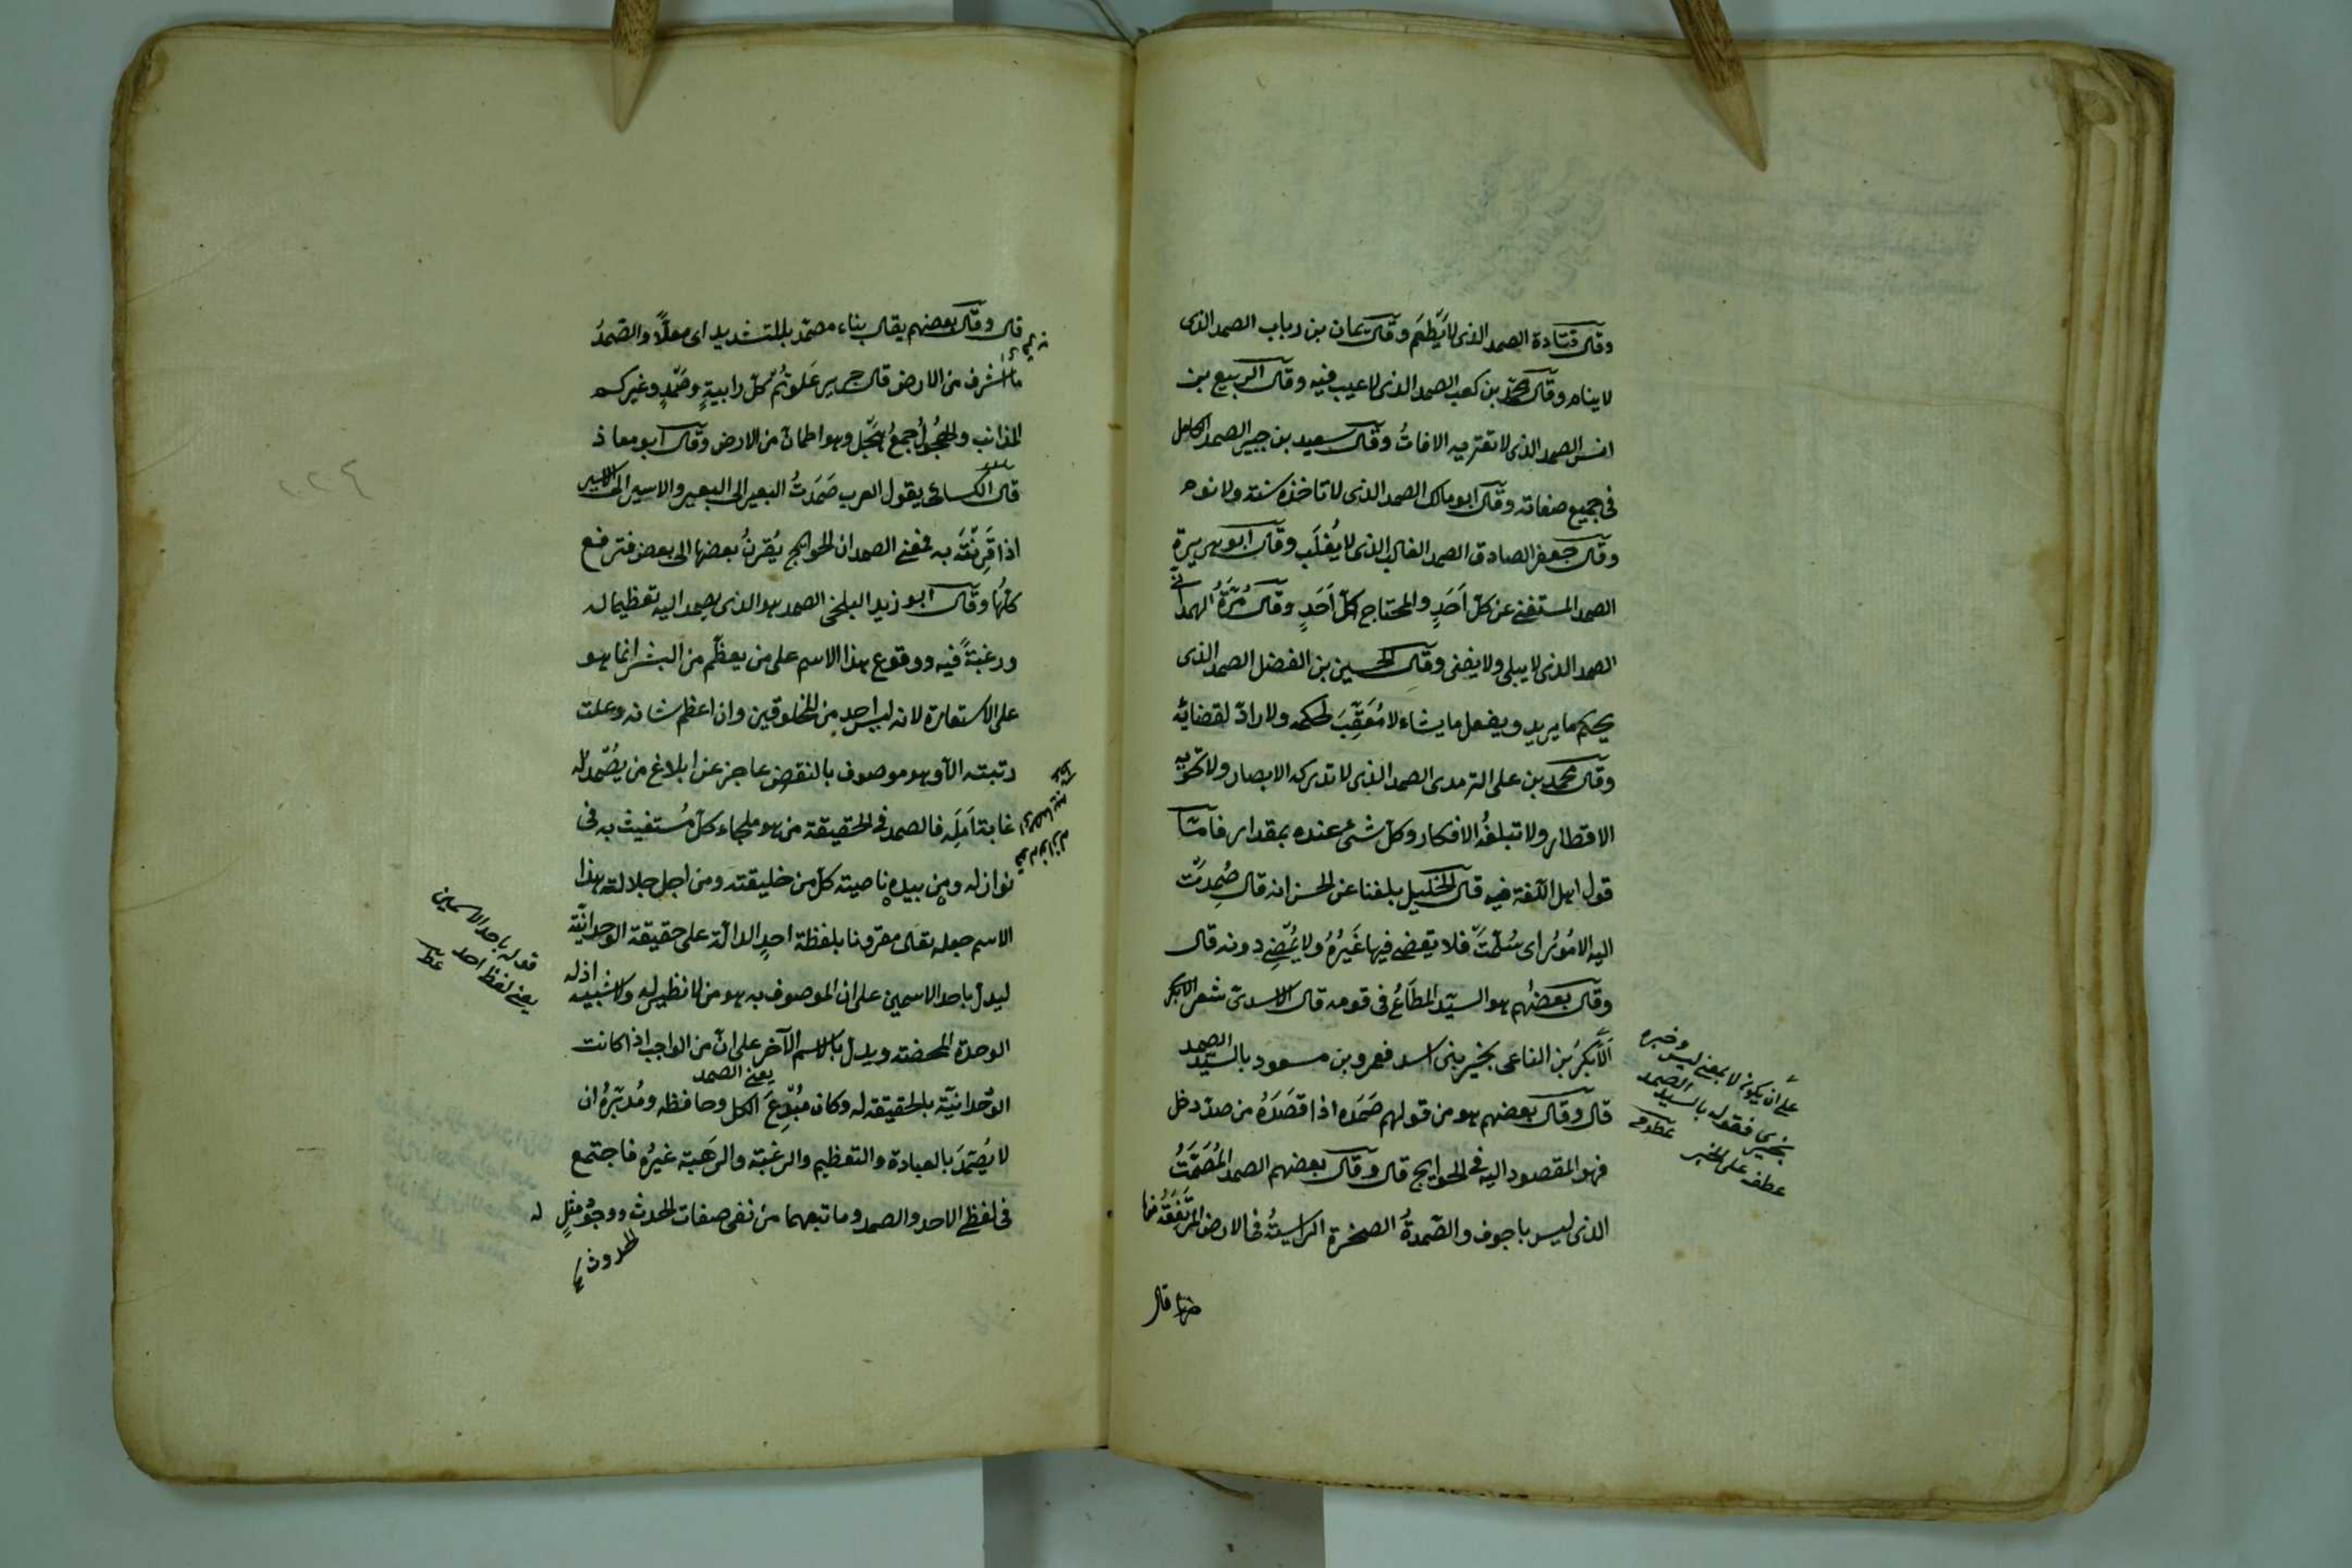 وقال قتادة الصمد الذى لا يَطعَم وقال يمان بن رباب الصمد الذى
لا ينام وقال محمّد بن كعب الصمد الذى لا عيب فيه وقال الربيع بن
انس الصمد الذى لا تعتريه الافاتُ وقال سعيد بن جبير الصمد الكامل
فى جميع صفاته وقال ابو مالك الصمد الذى لا تاخذه سنته ولا نوم
وقال جعفر الصادق الصمد الغالب الذى لا يُغلَب وقال ابو هريرة
الصمد المستغنے عن كلّ اَحَدٍ والمحتاج اليه كلّ اَحَدٍ وقال مُرَّةُ الهمدانے
الصمد الذى لا يبلى ولا يفنى وقال الحسين بن الفضل الصمد الذى
يحكم ما يريد ويفعل ما يشاء لا مُعَقِّبَ لحكمه ولا رادّ لقضائه
وقال محمد بن على الترمدى الصمد الذى لا تدركه الابصار ولا تحويه
الاقطار ولا تبلغُه الافكار وكل شئ عنده بمقدار فامّا
قول اهل اللّغة فيه قال الخليل بلغنا عن الحسن انه قال صُمِدَتْ
اليه الامُورُ اى سُلّمَتْ فلا يقضے فيها غَيْرُهُ ولا يُمْضِے دونه قال
وقال بعضُهم هو السيّد المطَاعُ فى قومه قال الاسدىّ شعر
اَلَا بَكرَ بْن الناعى بخير بنى اسد فعمرو بن مسعود بالسيّد الصمد
قال وقال بعضهم هو من قولهم صَمَدَه اذا قصَدَهُ من صدّ دخل
فهو المقصود اليه فى الحوايج قال وقال بعضهم الصمد المُصْمَتُ
الذى ليس باجوف والصَّمدةُ الصخرة الراسيةُ فى الارض المرتَفِعَةُ
منها قال
على ان يكون لا بمعنى ليس وخبره
بخير فقوله بالسيد الصمد
عطف على الخبر
قال وقال بعضهم يقال بناء مصمّد بالتشديد اى معلّاً والصّمدُ
ما اشرف من الارض قال جرير عَلوتُم كلّ رابيةٍ وصَمْدٍ وغيركم
المذانب والهُجُولُ جمعُ هَجْل وهو اطمانّ من الارض وقال ابو معاذ
قال الكسائى يقول العرب صَمَدتُ البعير الى البعير والاسير الى الاسير
اذا قَرنْتَه به فمعنے الصمد ان الحوايج يُقرنُ بعضها الى بعض فترفع
كلُّها وقال ابو زيد البلخى الصمد هو الذى يصمد اليه تعظيما له
ورغبةً فيه ووقوع هذا الاسم على من يعظّم من البشر انما هو
على الاستعارة لانه ليس احد من المخلوقين وان اعظم شانه وعلت
رتبته الّا وهو موصوف بالنقص عاجز عن ابلاغ من يُصْمد له
غاية اَمَلِه فالصمد فى الحقيقة من هو ملجاء كلّ مُستغيث به فى
نوازله ومن بيده ناصيته كلّ من خليقته ومن اجل جلالته هذا
الاسم جعله تعالى مقرونا بلفظة احدٍ الدالّة على حقيقة الوحدانيّة
ليدلّ باحد الاسمين على ان الموصوف به هو من لا نظير له ولا شبيه اذ له
الوحدة المحضته ويدلّ بالاسم الآخر على انّ من الواجب اذا كانت
يعنے الصمد
الوحدانيّة بالحقيقته له وكان مُبْدِعَ الكل وحافظه ومُدبّرهُ ان
لا يُصْمَدَ بالعبادة والتعظيم والرغبة والرَهَبة غيرُه فاجتمع
فى لفظے الاحد والصمد وما تبعهما من نفى صفات المحدث
الحدوث
قوله باحد الاسمين
يعنے لفظ احد
٢٢٤